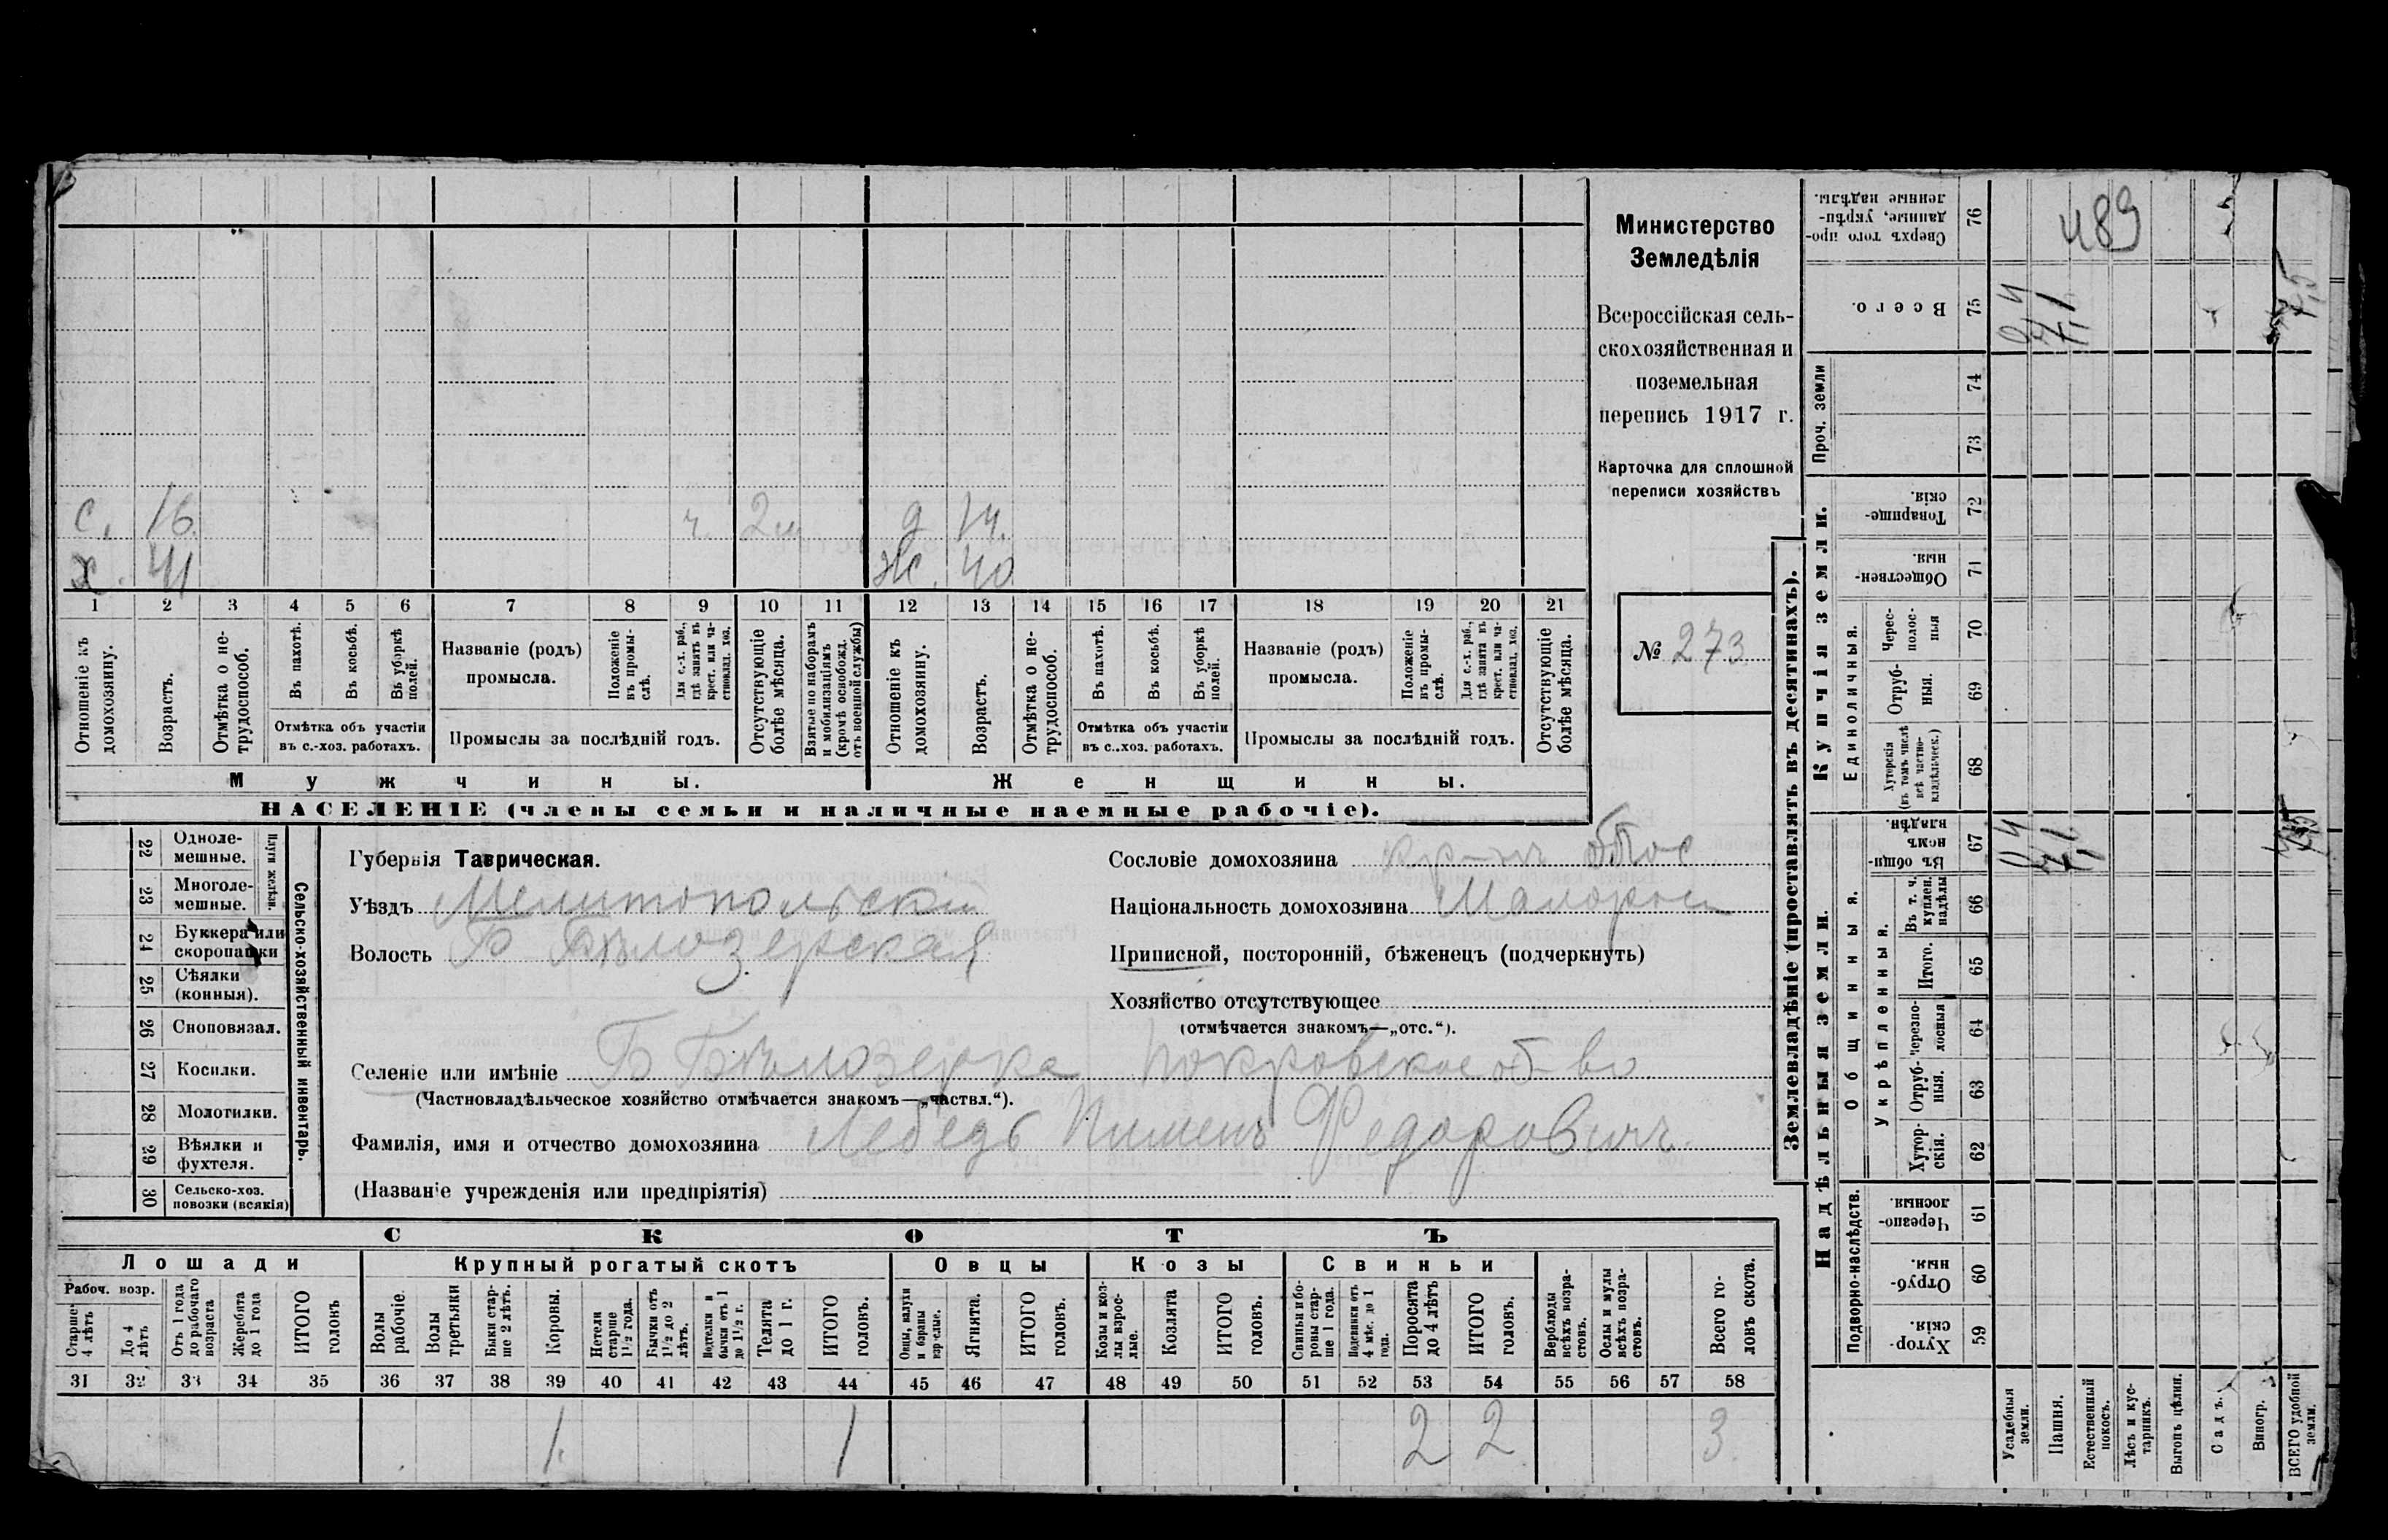 с. 16. ч. 2 м д 14.
х. 41 ж. 40
1 2 3 4 5 6 7 8 9 10 11 12 13 14 15 16 17 18 19 20 21
Отношеніе къ домохозяину.
Возрастъ.
Отмѣтка о не-трудоспособ.
Въ пахотѣ.
Въ косьбѣ.
Въ уборкѣ полей.
Отмѣтка объ участіи
въ с.-хоз. работахъ.
Названіе (родъ)
промысла.
Положеніе въ промы-слѣ.
Для с.-х. раб., гдѣ занятъ въ крест. или ча-стновлад. хоз.
Промыслы за послѣдній годъ.
Отсутствующіе болѣе мѣсяца.
Взятые по наборамъ и мобилизаціямъ (кромѣ освобожд. отъ военной службы)
Отношеніе къ домохозяину.
Возрастъ.
Отмѣтка о не-трудоспособ.
Въ пахотѣ.
Въ косьбѣ.
Въ уборкѣ полей.
Отмѣтка объ участіи
въ с..хоз. работахъ.
Названіе (родъ)
промысла.
Положеніе въ промы-слѣ.
Для с.-х. раб., гдѣ занята въ крест. или ча-стновлад. хоз.
Промыслы за послѣдній годъ.
Отсутствующіе болѣе мѣсяца.
Мужчины. Женщины.
НАСЕЛЕНІЕ (члены семьи и наличные наемные рабочіе).
Министерство
Земледѣлія
Всероссійская сель-
скохозяйственная и
поземельная
перепись 1917 г.
Карточка для сплошной
переписи хозяйствъ
№ 273
22 Одноле-мешные.
23 Многоле-мешные.
Плуги желѣзн.
24 Буккера или скоропашки
25 Сѣялки (конныя).
26 Сноповязал.
27 Косилки.
28 Молотилки.
29 Вѣялки и фухтеля.
30 Сельско-хоз. повозки (всякія)
Сельско-хозяйственный инвентарь.
Губернія Таврическая.
Уѣздъ Мелитопольскій
Волость Б Бѣлозерская
Сословіе домохозяина
Національность домохозяина Малорос
Приписной, посторонній, бѣженецъ (подчеркнуть)
Хозяйство отсутствующее
(отмѣчается знакомъ—„отс.“).
Селеніе или имѣніе Б Бѣлозерка Покровское об-во
(Частновладѣльческое хозяйство отмѣчается знакомъ—„частвл.“).
Фамилія, имя и отчество домохозяина Лебедь Пименъ Федоровичъ
(Названіе учрежденія или предпріятія)
СКОТЪ
Лошади Крупный рогатый скотъ Овцы Козы Свиньи
Рабоч. возр.
Старше 4 лѣтъ
До 4 лѣтъ
Отъ 1 года до рабочаго возраста
Жеребята до 1 года
ИТОГО головъ
Волы рабочіе.
Волы третьяки
Быки стар-ше 2 лѣтъ.
Коровы.
Нетели старше 1½ года.
Бычки отъ 1½ до 2 лѣтъ.
Подтелки и бычки отъ 1 до 1½ г.
Телята до 1 г.
ИТОГО головъ.
Овцы, валухи и бараны взрослые.
Ягнята.
ИТОГО головъ.
Козы и коз-лы взрос-лые.
Козлята
ИТОГО головъ.
Свиньи и бо-ровы стар-ше 1 года.
Подсвинки отъ 4 мѣс. до 1 года.
Поросята до 4 лѣтъ
ИТОГО головъ.
Верблюды всѣхъ возра-стовъ.
Ослы и мулы всѣхъ возра-стовъ.
Всего го-ловъ скота.
31 32 33 34 35 36 37 38 39 40 41 42 43 44 45 46 47 48 49 50 51 52 53 54 55 56 57 58
1. 1 2 2 3
Землевладѣніе (проставлять въ десятинахъ).
Сверхъ того про-данные, укрѣп-ленные надѣлы. 76 489
Всего. 75 0,4 7,1 7,5
Проч. земли 74
73
Купчія земли.
Товарище-скія. 72
Обществен-ныя. 71
Единоличныя.
Черес-полос-ныя 70
Отруб-ныя. 69
Хуторскія (въ томъ числѣ всѣ частно-владѣльческ.) 68
Надѣльныя земли.
Общинныя.
Въ общи-номъ владѣн. 67 0,4 7,1 7,5
Укрѣпленныя.
Въ т. ч. куплен. надѣлы 66
Итого. 65
Черезпо-лосныя 64
Отруб-ныя. 63
Хутор-скія. 62
Подворно-наслѣдств.
Черезпо-лосныя 61
Отруб-ныя. 60
Хутор-скія. 59
Усадебныя земли.
Пашня.
Естественный покосъ.
Лѣсъ и кус-тарникъ.
Выгонъ цѣлин.
Садъ.
Виногр.
ВСЕГО удобной земли.